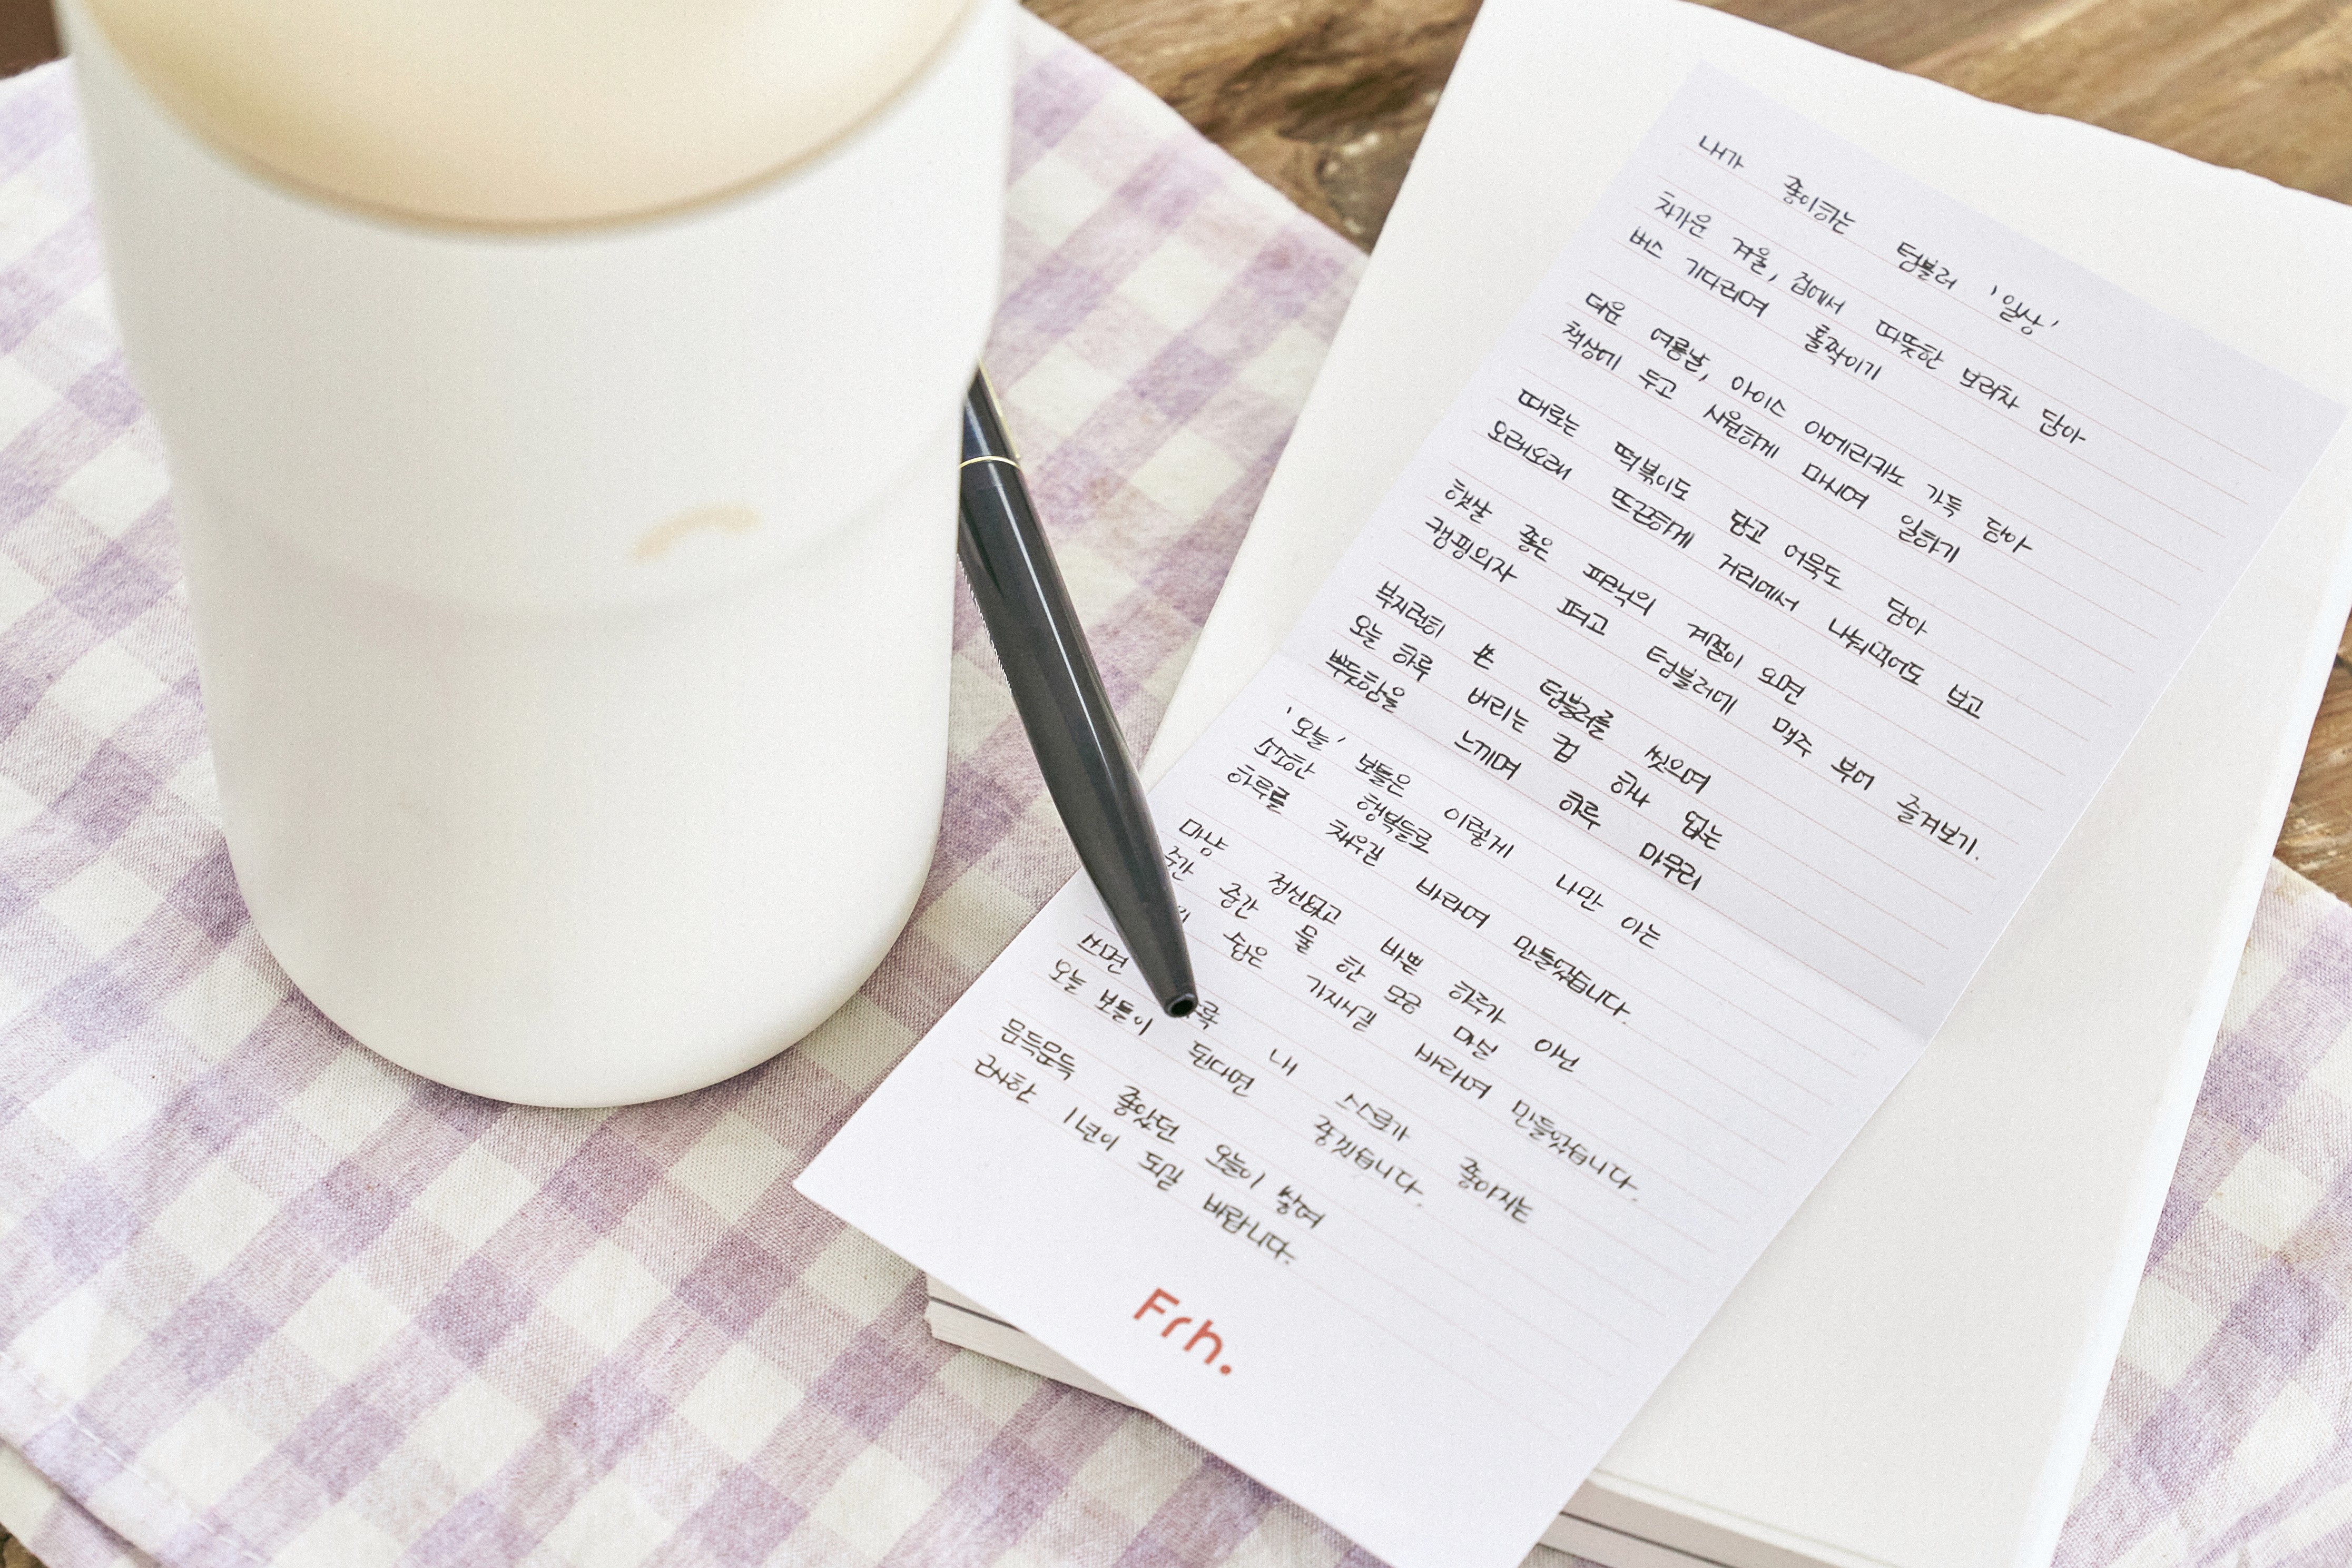 내가 좋아하는 텀블러 '일상'
차가운 겨울, 집에서 따뜻한 보리차 담아
버스 기다리며 홀짝이기
더운 여름날, 아이스 아메리카노 가득 담아
책상에 두고 시원하게 마시며 일하기
때로는 떡볶이도 담고 어묵도 담아
오래오래 뜨끈하게 거리에서 나눠먹어도 보고
햇살 좋은 피크닉의 계절이 오면
캠핑의자 펴고 텀블러에 맥주 부어 즐겨보기.
부지런히 쓴 텀블러를 씻으며
오늘 하루 버리는 컵 하나 없는
뿌듯함을 느끼며 하루 마무리
'오늘' 보틀은 이렇게 나만 아는
소소한 행복들로
하루를 채우길 바라며 만들었습니다.
마냥 정신없고 바쁜 하루가 아닌
중간 중간 물 한 모금 마실
쉼은 가지시길 바라며 만들었습니다.
쓰면 록 내 스스로가 좋아지는
오늘 보틀이 된다면 좋겠습니다.
문득문득 좋았던 오늘이 쌓여
근사한 1년이 되길 바랍니다.
Frh.